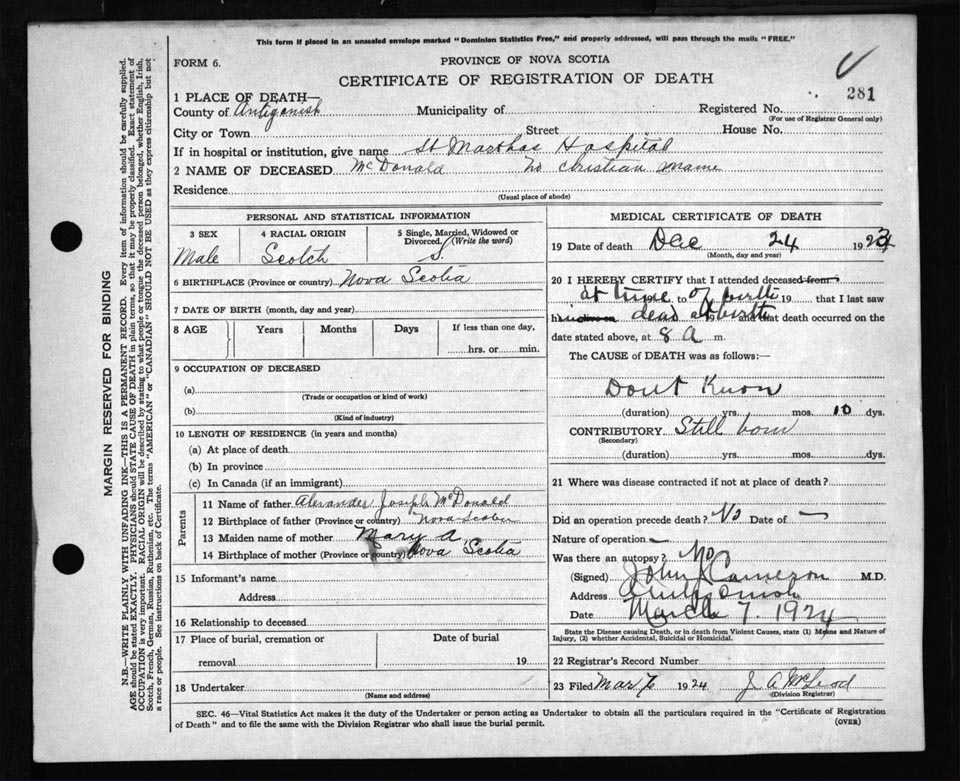 This form if placed in an unsealed envelope marked "Dominion Statistics Free," and properly addressed, will pass through the mails "FREE."
FORM 6.
PROVINCE OF NOVA SCOTIA
CERTIFICATE OF REGISTRATION OF DEATH
281
1 PLACE OF DEATH—
County of Antigonish Municipality of Registered No.
(For use of Registrar General only)
City or Town Street House No.
If in hospital or institution, give name St Marthas Hospital
2 NAME OF DECEASED McDonald no christian name
Residence
(Usual place of abode)
PERSONAL AND STATISTICAL INFORMATION
3 SEX 4 RACIAL ORIGIN 5 Single, Married, Widowed or Divorced. (Write the word)
Male Scotch S.
6 BIRTHPLACE (Province or country) Nova Scotia
7 DATE OF BIRTH (month, day and year)
8 AGE Years Months Days If less than one day,
hrs. or min.
9 OCCUPATION OF DECEASED
(a)
(Trade or occupation or kind of work)
(b)
(Kind of industry)
10 LENGTH OF RESIDENCE (in years and months)
(a) At place of death
(b) In province
(c) In Canada (if an immigrant)
Parents
11 Name of father Alexander Joseph McDonald
12 Birthplace of father (Province or country) Nova Scotia
13 Maiden name of mother Mary A
14 Birthplace of mother (Province or country) Nova Scotia
15 Informant's name
Address
16 Relationship to deceased
17 Place of burial, cremation or Date of burial
removal 19
18 Undertaker
(Name and address)
MEDICAL CERTIFICATE OF DEATH
19 Date of death Dec 24 192
(Month, day and year)
20 I HEREBY CERTIFY that I attended deceased from
at time to of birth 19 that I last saw
h dead at birth and that death occurred on the
date stated above, at 8 A m.
The CAUSE of DEATH was as follows:—
Dont Know
(duration) yrs. mos. 10 dys.
CONTRIBUTORY Still born
(Secondary)
(duration) yrs. mos. dys.
21 Where was disease contracted if not at place of death?
Did an operation precede death? No Date of —
Nature of operation —
Was there an autopsy? No
(Signed) John Cameron M.D.
Address Antigonish
Date March 7. 1924
State the Disease causing Death, or in death from Violent Causes, state (1) Means and Nature of
Injury, (2) whether Accidental, Suicidal or Homicidal.
22 Registrar's Record Number
23 Filed Mar 7 1924 J A McLeod
(Division Registrar)
SEC. 46—Vital Statistics Act makes it the duty of the Undertaker or person acting as Undertaker to obtain all the particulars required in the "Certificate of Registration
of Death" and to file the same with the Division Registrar who shall issue the burial permit.
(OVER)
MARGIN RESERVED FOR BINDING
N.B.—WRITE PLAINLY WITH UNFADING INK—THIS IS A PERMANENT RECORD. Every item of information should be carefully supplied.
AGE should be stated EXACTLY. PHYSICIANS should STATE CAUSE OF DEATH in plain terms, so that it may be properly classified. Exact statement of
OCCUPATION is very important. RACIAL ORIGIN will be described by stating to what people or tongue the deceased person belonged, whether English, Irish,
Scotch, French, German, Russian, Ruthenian, etc. The terms "AMERICAN" or "CANADIAN" SHOULD NOT BE USED as they express citizenship but not
a race or people. See instructions on back of Certificate.